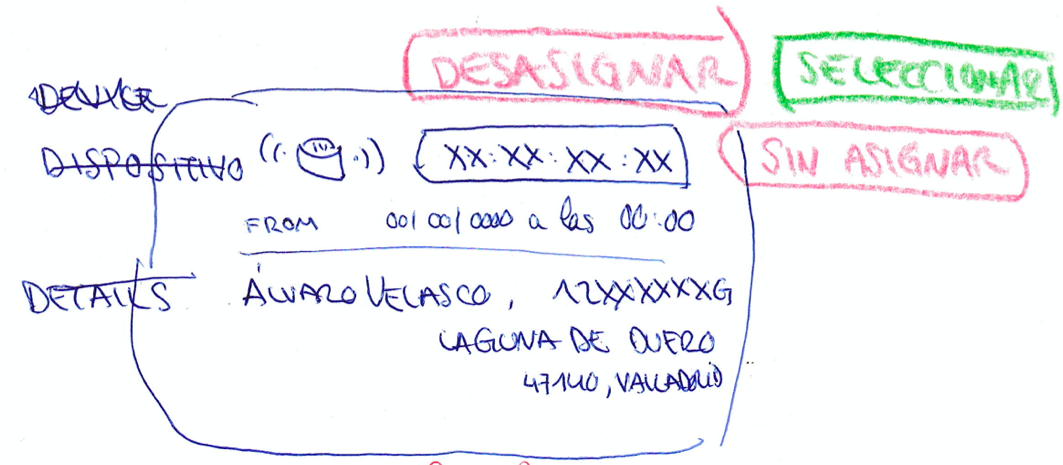 DESASIGNAR
SELECCIONAR
DEVICE
DISPOSITIVO XX:XX:XX:XX
SIN ASIGNAR
FROM 00/00/0000 a las 00:00
DETAILS ÁLVARO VELASCO, 12XXXXXXG
LAGUNA DE DUERO
47140, VALLADOLID